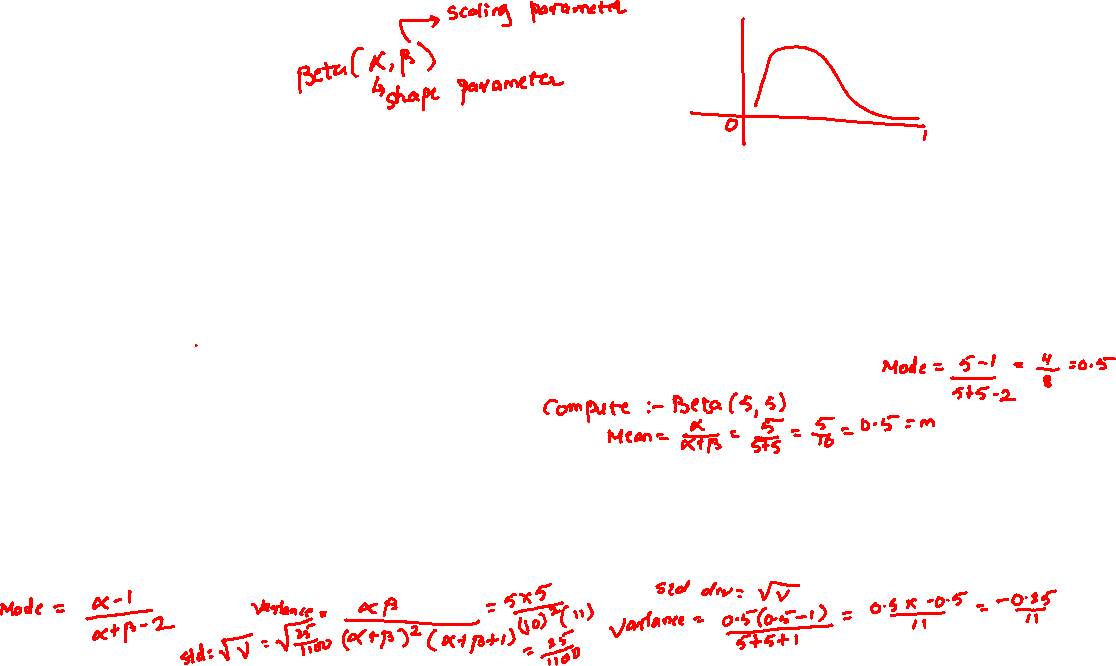 scaling parameter
Beta(α, β)
↳ shape parameter
0
1
Mode = (5-1)/(5+5-2) = 4/8 = 0.5
Compute :- Beta(5, 5)
Mean = α/(α+β) = 5/(5+5) = 5/10 = 0.5 = m
Mode = (α-1)/(α+β-2)
Variance = αβ/((α+β)²(α+β+1)) = 5x5/((10)²(11)) = 25/1100
std = √V = √(25/1100)
Std dev = √V
Variance = 0.5(0.5-1)/(5+5+1) = 0.5x-0.5/11 = -0.25/11